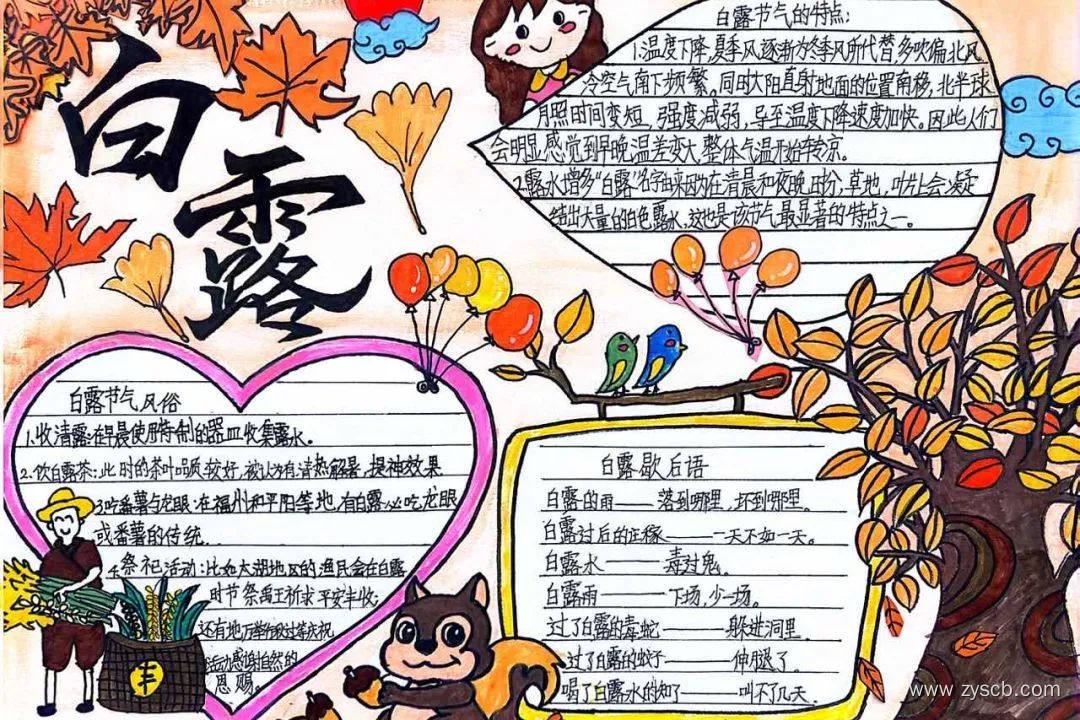 白露
白露节气的特点：
1.温度下降，夏季风逐渐为冬季风所代替，多吹偏北风，
冷空气南下频繁。同时太阳直射地面的位置南移，北半球
日照时间变短，强度减弱，导至温度下降速度加快。因此人们
会明显感觉到早晚温差变大，整体气温开始转凉。
2.露水增多"白露"名字由来因为在清晨和夜晚时分，草地，叶片上会凝
结出大量的白色露水，这也是该节气最显著的特点之一。
白露节气风俗
1.收清露：在早晨使用特制的器皿收集露水。
2.饮白露茶：此时的茶叶品质较好，被认为有清热解暑、提神效果
3.吃番薯与龙眼：在福州和平阳等地，有白露必吃龙眼
或番薯的传统..
4.祭祀活动：比如太湖地区的渔民会在白露
时节祭禹王祈求平安丰收
还有地方举行
活动感谢自然的
恩赐。
丰
白露歇后语
白露的雨——落到哪里，坏到哪里。
白露过后的庄稼——一天不如一天。
白露水——毒过鬼。
白露雨——下一场，少一场。
过了白露的毒蛇——躲进洞里。
过了白露的蚊子——伸腿了。
喝了白露水的知了——叫不了几天。
www.zyscb.com